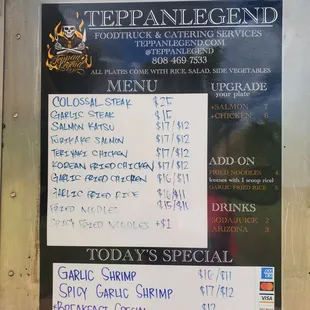 TEPPANLEGEND
FOODTRUCK & CATERING SERVICES
TEPPANLEGEND.COM
@TEPPANLEGEND
808 469-7533
ALL PLATES COME WITH RICE, SALAD, SIDE VEGETABLES
MENU
COLOSSAL STEAK $25
GARLIC STEAK $15
SALMON KATSU $17/$12
FURIKAKE SALMON $17/$12
TERIYAKI CHICKEN $17/$12
KOREAN FRIED CHICKEN $17/$12
GARLIC FRIED CHICKEN $16/$11
GARLIC FRIED RICE $16/$11
FRIED NOODLES $15/$11
SPICY FRIED NOODLES +$1
UPGRADE
your plate
+SALMON 7
+CHICKEN 6
ADD-ON
FRIED NOODLES 4
comes with 1 scoop rice
GARLIC FRIED RICE 5
DRINKS
SODA/JUICE 2
ARIZONA 3
TODAY'S SPECIAL
GARLIC SHRIMP $16/$11
SPICY GARLIC SHRIMP $17/$12
+BREAKFAST SPECIAL $12
VISA